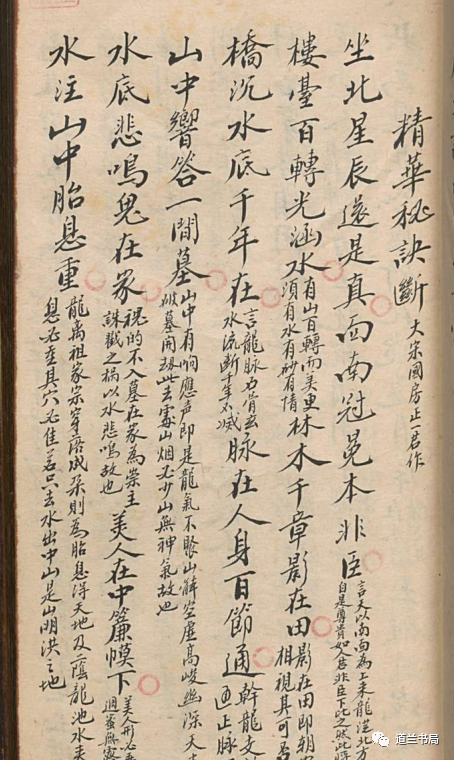 精華秘訣斷 大宋國房正一君作
坐北星辰還是真面南冠冕本非臣 言天以南面為上来龍從北方
自是尊貴如君非臣下比之然此
樓臺百轉光涵水 有山百轉而美更
須有水有砂有情
林木千章影在田 影在田即朝
相視其可
橋沉水底千年在 言龍脉乃骨
水流斷千年不滅
脉在人身百節通 幹龍支
止脉
山中響答一間墓 山中有响應声即是龍氣不聚山解空虛高峻幽深天
破墓開劫此去處山烟必少山無神氣故也
水底悲鳴鬼在冢 的不入墓在家為祟主
誅戳之禍以水悲鳴故也
美人在中簾幙下 美人形必
水注山中胎息重 龍离祖家宗穿落成朵則為胎息得天地及二蔭龍池水
息必重其穴必佳若只去水出中山是山明洪之地
道兰书局